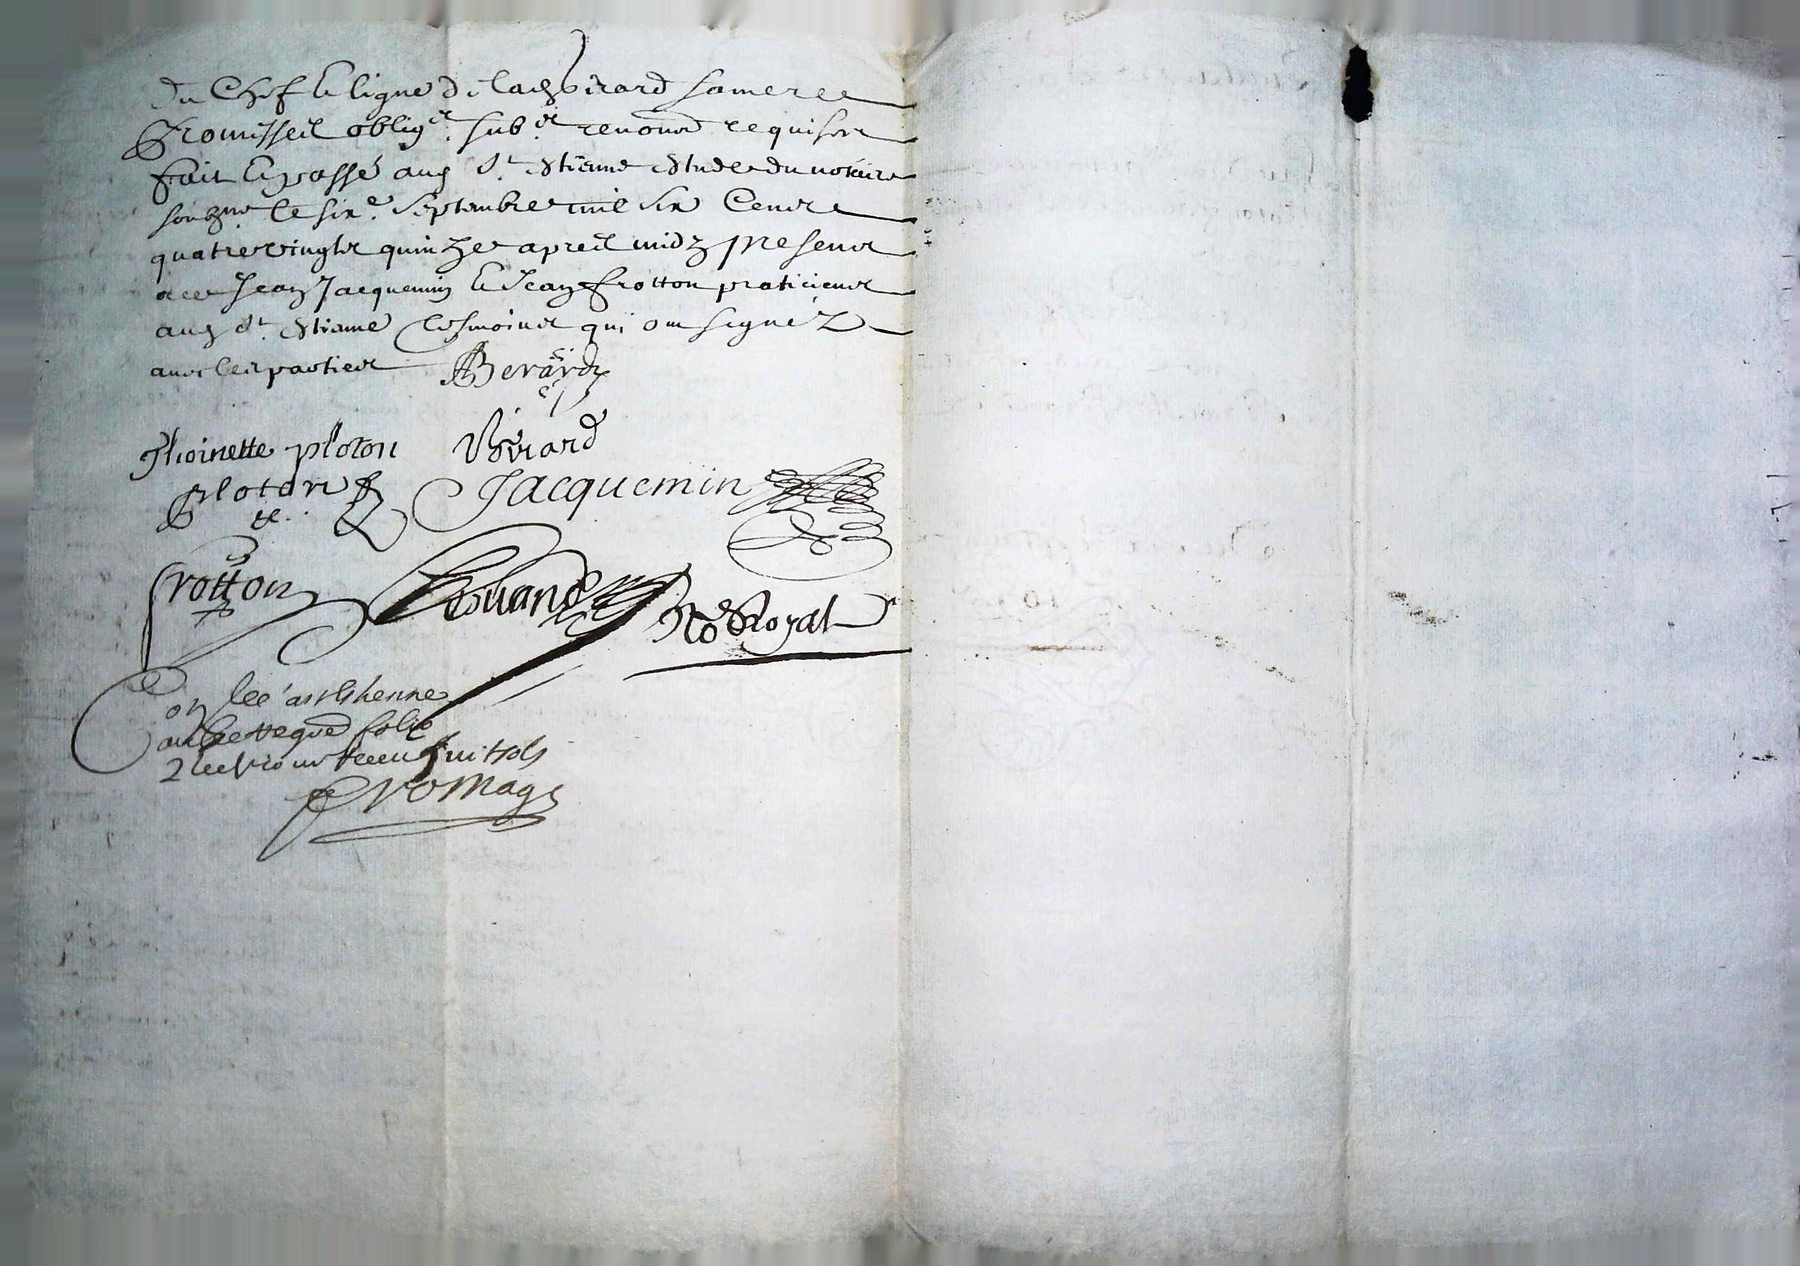 du Chef & ligne de lad berard sa mere
Promisses oblig. sub. renon requises
fait & passé aud St. Etienne Etude du notaire
soubz.ne le six.e Septembre mil six Cents
quatre vinght quinze apres midy presents
ace Jean Jacquemin & Jean frotton praticiens
aud St. Etienne tesmoins qui ont signéz
avec les parties Berard
Thoinette ploton Berard
ploton Jacquemin
frotton No.re Royal
Con.lle a st Ethienne
huit sols